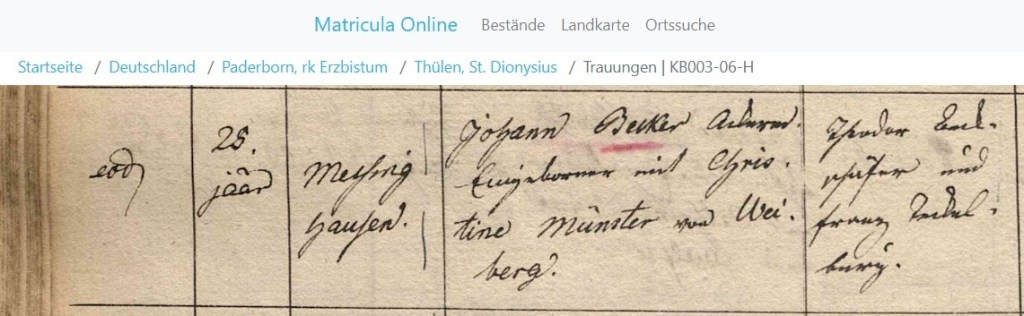 Matricula Online Bestände Landkarte Ortssuche
Startseite / Deutschland / Paderborn, rk Erzbistum / Thülen, St. Dionysius / Trauungen | KB003-06-H
eod
28.
jäär
Messing
hausen.
Johann Becker Ackerm.
Eingeborner mit Chris.
tine Münster von Wei.
berg.
Theodor
schäfer und
franz Teckel.
burg.